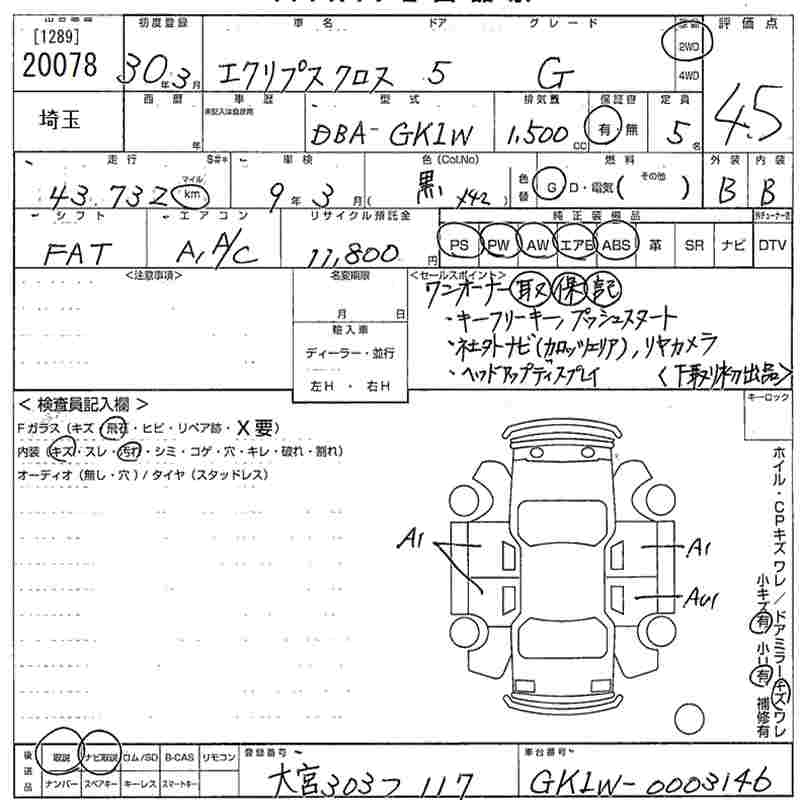 [1289]
20078
初度登録 車名 ドア グレード
30年3月 エクリプスクロス 5 G
2WD
4WD
評価点
4.5
埼玉
西暦 車歴 型式 排気量 保証書 定員
未記入は自家用
年 DBA-GK1W 1,500cc 有・無 5名
走行 車検 色(Col.No) 燃料 外装 内装
43,732 マイル km 9年3月 黒 X42 色替 G D・電気( その他 ) B B
シフト エアコン リサイクル預託金 純正装備品
FAT A,A/C 11,800円 PS PW AW エアB ABS 革 SR ナビ DTV
<注意事項> 名変期限 <セールスポイント>
月 日
輸入車
ディーラー・並行
左H・右H
ワンオーナー 取 保 記
・キーフリーキー,プッシュスタート
・社外ナビ(カロッツェリア),リヤカメラ
・ヘッドアップディスプレイ <下取り初出品>
<検査員記入欄> キーロック
Fガラス(キズ・飛石・ヒビ・リペア跡・X要)
内装(キズ・スレ・汚れ・シミ・コゲ・穴・キレ・破れ・割れ)
オーディオ(無し・穴)/タイヤ(スタッドレス)
A1 A1
AU1
ホイル・CPキズ ワレ/ドアミラーキズ ワレ
小キズ有 小U有 補修有
後送品 取説 ナビ取説 ロム/SD B-CAS リモコン
ナンバー スペアキー キーレス スマートキー
登録番号 大宮303フ117
車台番号 GK1W-0003146